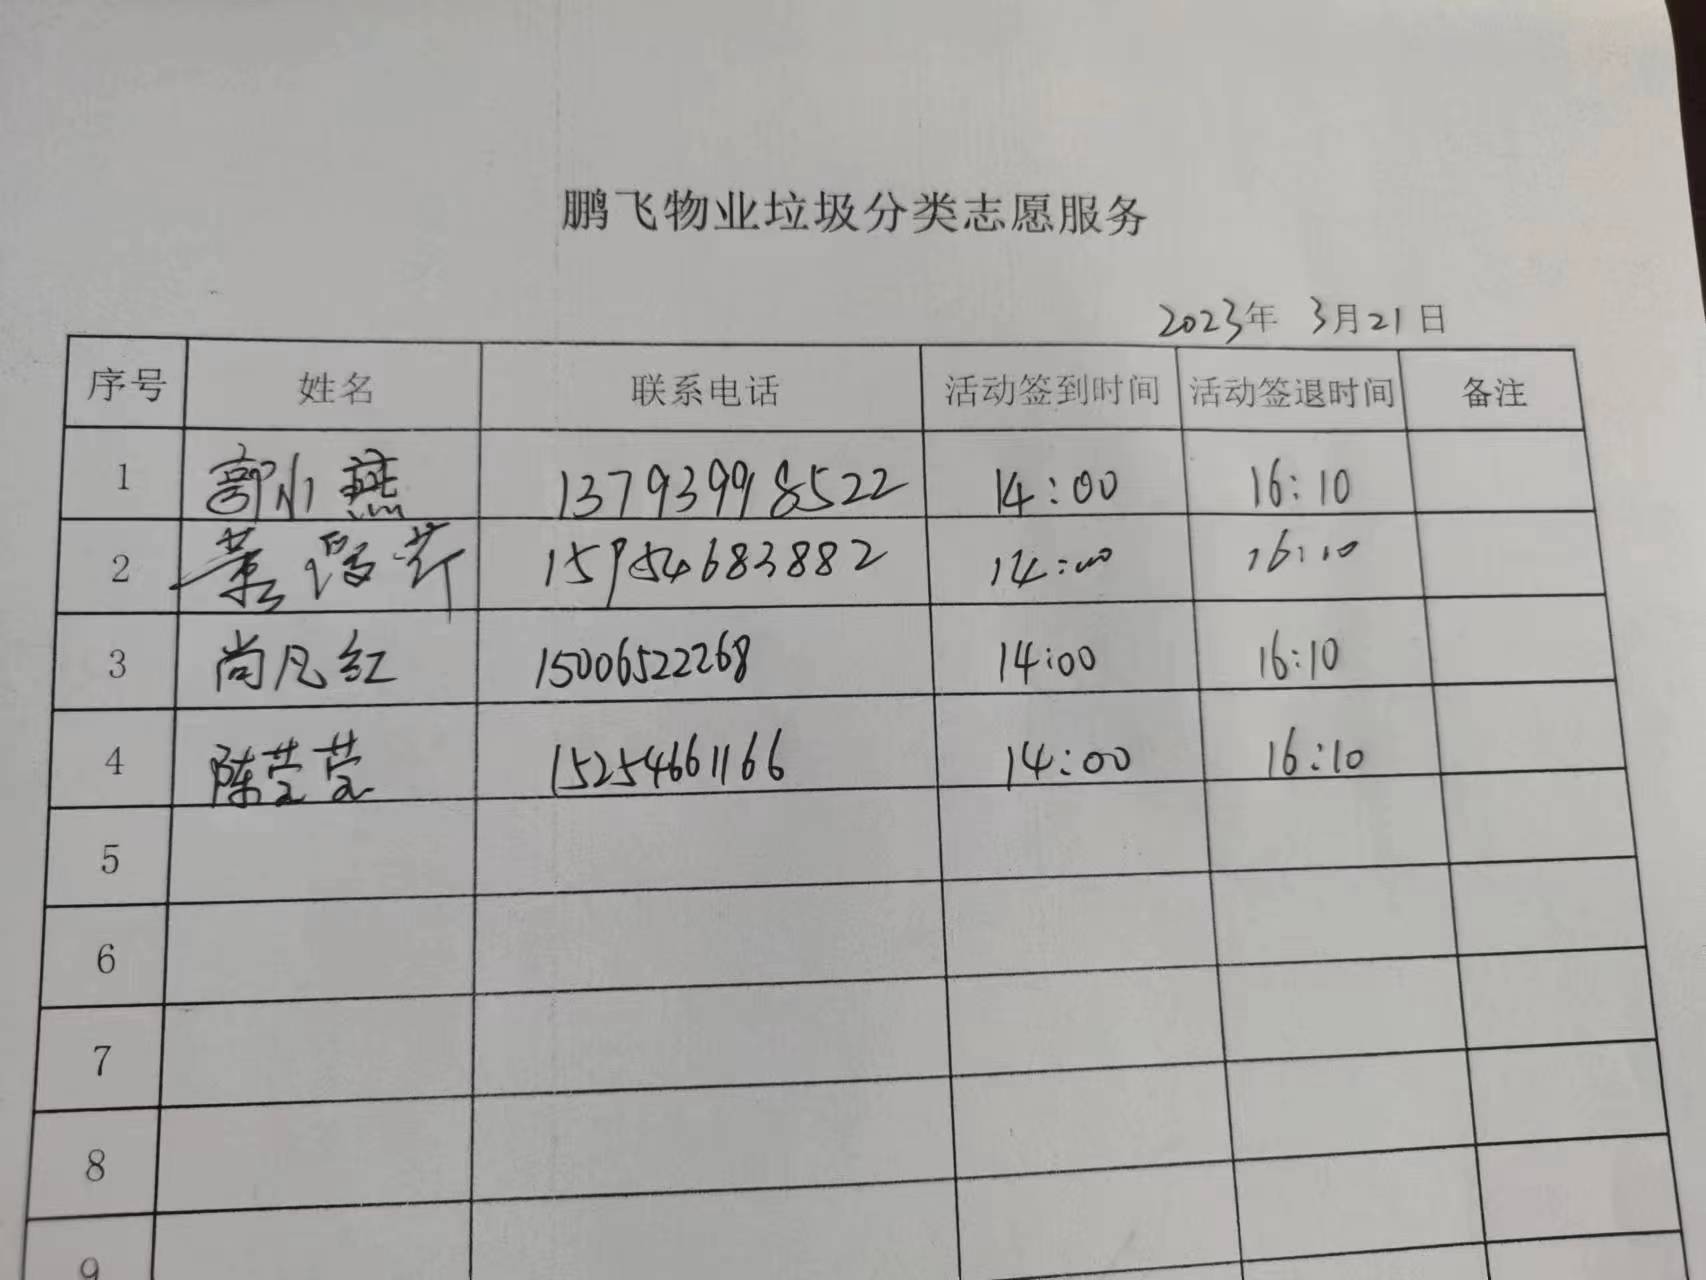 鹏飞物业垃圾分类志愿服务
2023年 3月21日
序号 姓名 联系电话 活动签到时间 活动签退时间 备注
1 郭小燕 13793998522 14:00 16:10
2 董 15954683882 14:00 16:10
3 尚凡红 15006522268 14:00 16:10
4 陈莹莹 15254661166 14:00 16:10
5
6
7
8
9